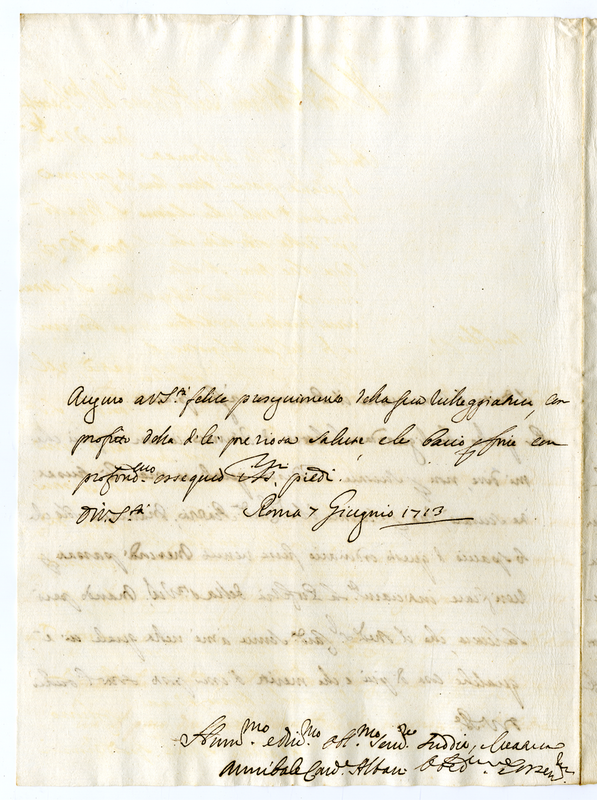 Auguro a V. S.tà felice proseguimento della sua Villeggiatura, con
profitto della di lei preziosa salute, e le bacio per fine con
profond.mo ossequio i SS.mi piedi.
Di V. S.tà Roma 7 Giugno 1713
Hum.mo e Div.mo Obl.mo Serv.re Suddito, e Creatura
Annibale Card.e Albani